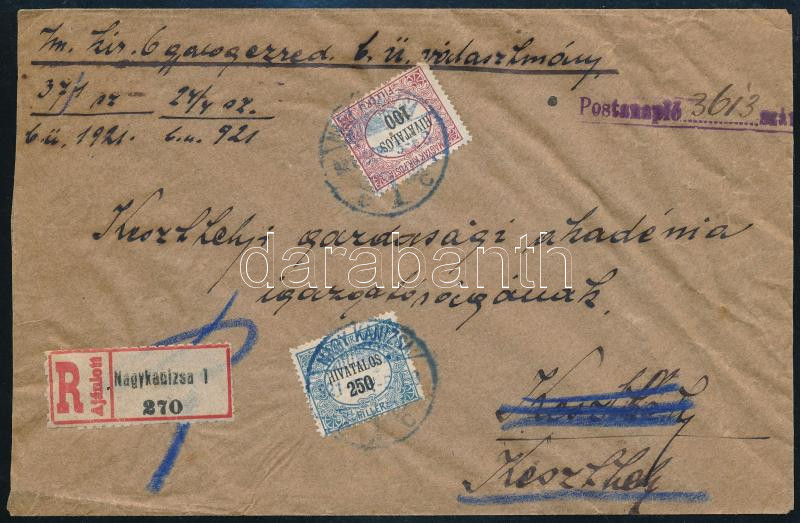 m. kir. 6 b. ü. választmány
37/1 sz 24/7 sz.
b.ü. 1921. b.u. 921
Postanapló 3613 szám
MAGYAR KIR. POSTA
HIVATALOS
100
FILLÉR
Keszthelyi gazdasági akadémia
igazgatóságának
darabanth
NAGYKANIZSA
HIVATALOS
250
FILLÉR
R
Ajánlott
Nagykanizsa 1
270
Keszthely
Keszthely